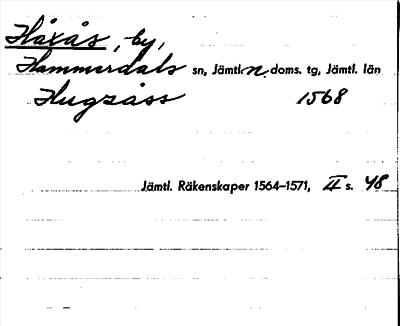 Håxås, by,
Hammerdals sn, Jämtl. n. doms. tg, Jämtl. län
Hugsåss 1568
Jämtl. Räkenskaper 1564–1571, II s. 48